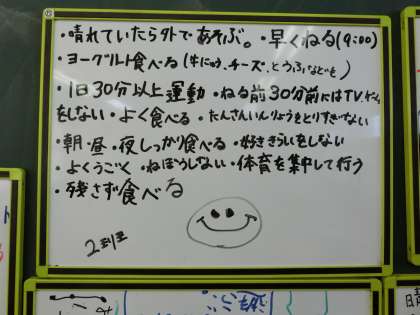 ・晴れていたら外であそぶ。・早くねる(9:00)
・ヨーグルト食べる(牛にゅう、チーズ、とうふなども)
・1日30分以上運動 ・ねる前30分前にはTV、ゲーム
をしない ・よく食べる ・たんさんいんりょうをとりすぎない
・朝・昼・夜しっかり食べる ・好ききらいをしない
・よくうごく ・ねぼうしない ・体育を集中して行う
・残さず食べる
2班